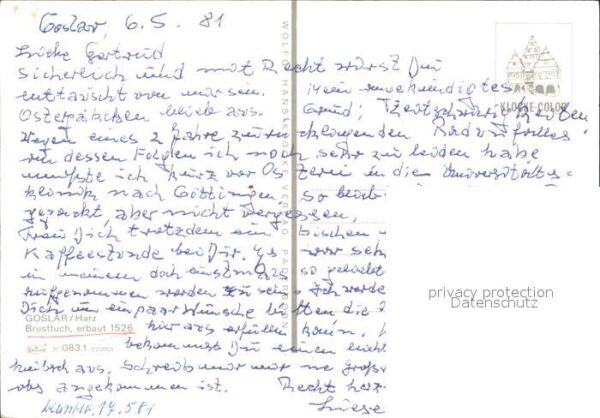 Goslar, 6.5.81
Liebe Gertrud
Sicherlich und mit Recht wirst Du
enttäuscht von mir sein. Mein angekündigtes
Osterpäckchen blieb aus. Grund:
Wegen eines 2 Jahre zurückliegenden Radunfalles
an dessen Folgen ich noch sehr zu leiden habe
mußte ich kurz vor Ostern in die Universitäts-
klinik nach Göttingen, so blieb
gepackt, aber nicht vergessen.
Freu Dich trotzdem ein bischen
Kaffeestunde bei Dir. Es war sehr
in meinem doch einstmals so geliebten
aufgenommen worden zu sein. Ich werde
Dich um ein paar Wünsche bitten die
hier aus erfüllen kann.
bekommst Du einen
hübsch aus. Schreib mir nur
obs angekommen ist. Recht herz
Liese
14.5.81
WOLFGANG HANS KLOCKE VERLAG, PADERBORN
KLOCKE-COLOR
GOSLAR/Harz
Brusttuch, erbaut 1526
083.1
privacy protection
Datenschutz